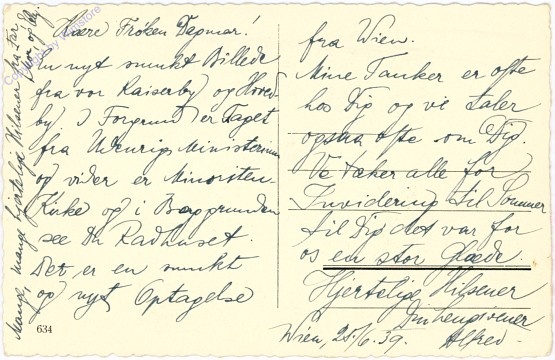 Kære Frøken Dagmar!
en nyt smukt Billede
fra vor Kaiserby og Hoved-
by. I Forgrund er Taget
fra Udenrigs Ministerium
og vider er Minoriten-
Kirke og i Baggrunden
see Du Radhuset.
Det er en smukt
og nyt Optagelse
634
Mange, mange hjertelige Hilsener fra Far
og
fra Wien.
Mine Tanker er ofte
hos Dig og vi taler
ogsaa ofte om Dig.
Ve taker alle for
Invidering til Sommer
til Dig det var for
os en stor Glæde.
Hjertelige Hilsener
Din hengivener
Wien, 25/6.39. Alfred